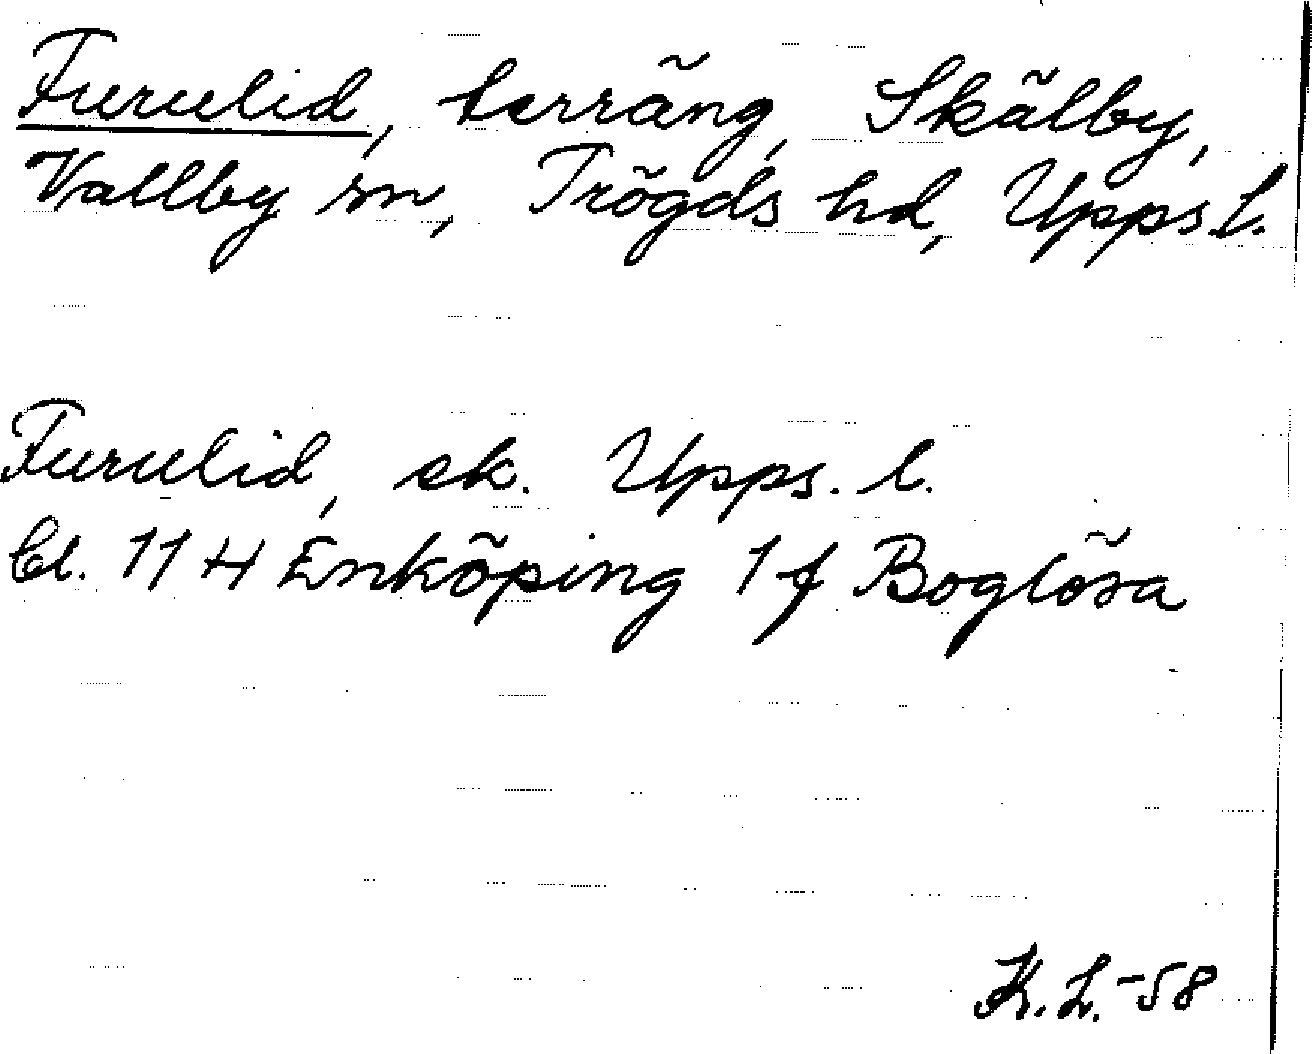 Furulid, terräng, Skälby,
Vallby sn, Trögds hd, Upps.l.
Furulid, ek. Upps. l.
Bl. 11 H Enköping 1 f Boglösa
K.L.-58